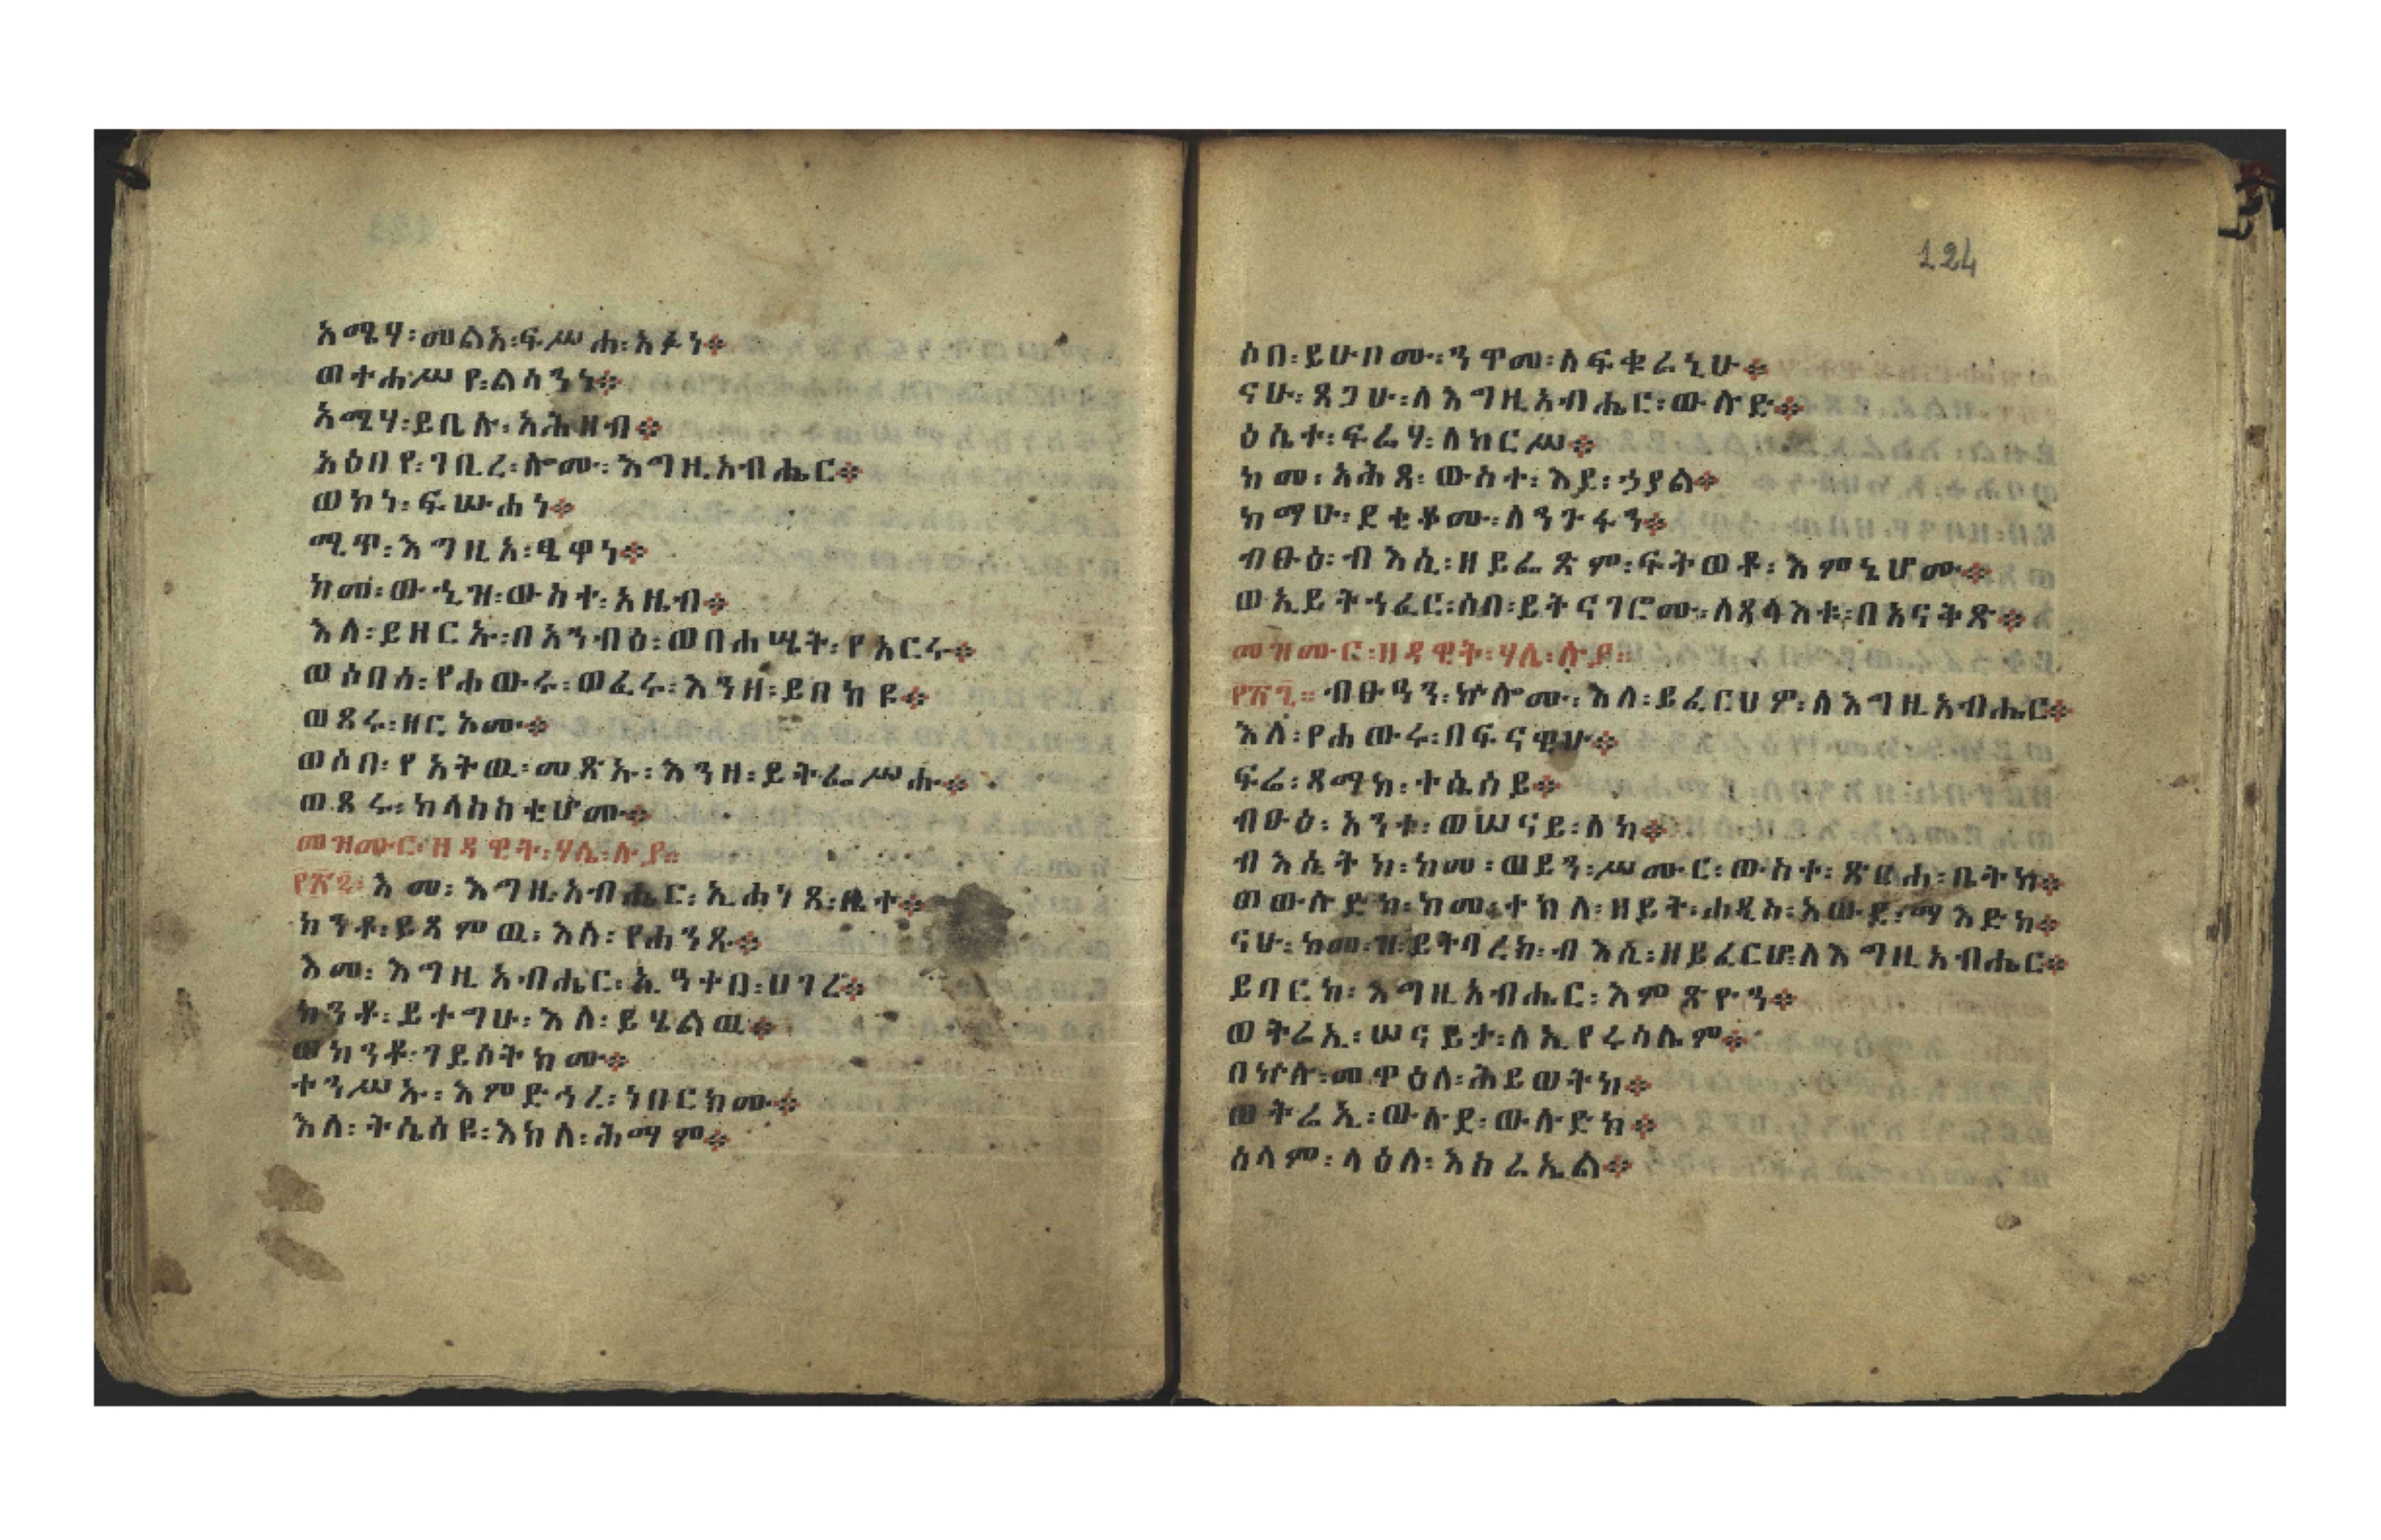 አሜሃ፡መልአ፡ፍሥሐ፡አፉነ።
ወተሐሥየ፡ልሳንነ።
አሜሃ፡ይቢሉ፡አሕዛብ።
አዕበየ፡ገቢረ፡ሎሙ፡እግዚአብሔር።
ወኮነ፡ፍሡሐነ።
ሚጥ፡እግዚአ፡ፄዋነ።
ከመ፡ውኂዝ፡ውስተ፡አዜብ።
እለ፡ይዘርኡ፡በአንብዕ፡ወበሐሤት፡የአርሩ።
ወሶበሰ፡የሐውሩ፡ወፈሩ፡እንዘ፡ይበክዩ።
ወጾሩ፡ዘርአሙ።
ወሶበ፡የአትዉ፡መጽኡ፡እንዘ፡ይትፌሥሑ።
ወጾሩ፡ከላስስቲሆሙ።
መዝሙር፡ዘዳዊት፡ሃሌ፡ሉያ።
፻፳፮፡እመ፡እግዚአብሔር፡ኢሐነጸ፡ቤተ።
ከንቶ፡ይጻምዉ፡እለ፡የሐንጹ።
እመ፡እግዚአብሔር፡ኢዓቀበ፡ሀገረ።
ከንቶ፡ይተግሁ፡እለ፡ይሄልዉ።
ወከንቶ፡ገይሰትክሙ።
ተንሥኡ፡እምድኅረ፡ነበርክሙ።
እለ፡ትሴሰዩ፡እክለ፡ሕማም።
124
ሶበ፡ይሁቦሙ፡ንዋመ፡ለፍቁራኒሁ።
ናሁ፡ጸጋሁ፡ለእግዚአብሔር፡ውሉድ።
ዕሴተ፡ፍሬሃ፡ለከርሥ።
ከመ፡አሕጻ፡ውስተ፡እደ፡ኃያል።
ከማሁ፡ደቂቆሙ፡ለንጉፋን።
ብፁዕ፡ብእሲ፡ዘይፌጽም፡ፍትወቶ፡እምኔሆሙ።
ወኢይትኀፈር፡ሶበ፡ይትናገሮሙ፡ለጸላእቱ፡በአናቅጽ።
መዝሙር፡ዘዳዊት፡ሃሌ፡ሉያ።
፻፳፯፡ብፁዓን፡ኵሎሙ፡እለ፡ይፈርህዎ፡ለእግዚአብሔር።
እለ፡የሐውሩ፡በፍናዊሁ።
ፍሬ፡ጻማከ፡ተሴሰይ።
ብፁዕ፡አንተ፡ወሠናይ፡ለከ።
ብእሲትከ፡ከመ፡ወይን፡ሥሙር፡ውስተ፡ጽፍሐ፡ቤትከ።
ወውሉድከ፡ከመ፡ተክለ፡ዘይት፡ሐዲስ፡አውደ፡ማእድከ።
ናሁ፡ከመዝ፡ይትባረክ፡ብእሲ፡ዘይፈርሆ፡ለእግዚአብሔር።
ይባርክ፡እግዚአብሔር፡እምጽዮን።
ወትሬኢ፡ሠናይታ፡ለኢየሩሳሌም።
በኵሉ፡መዋዕለ፡ሕይወትከ።
ወትሬኢ፡ውሉደ፡ውሉድከ።
ሰላም፡ላዕለ፡እስራኤል።